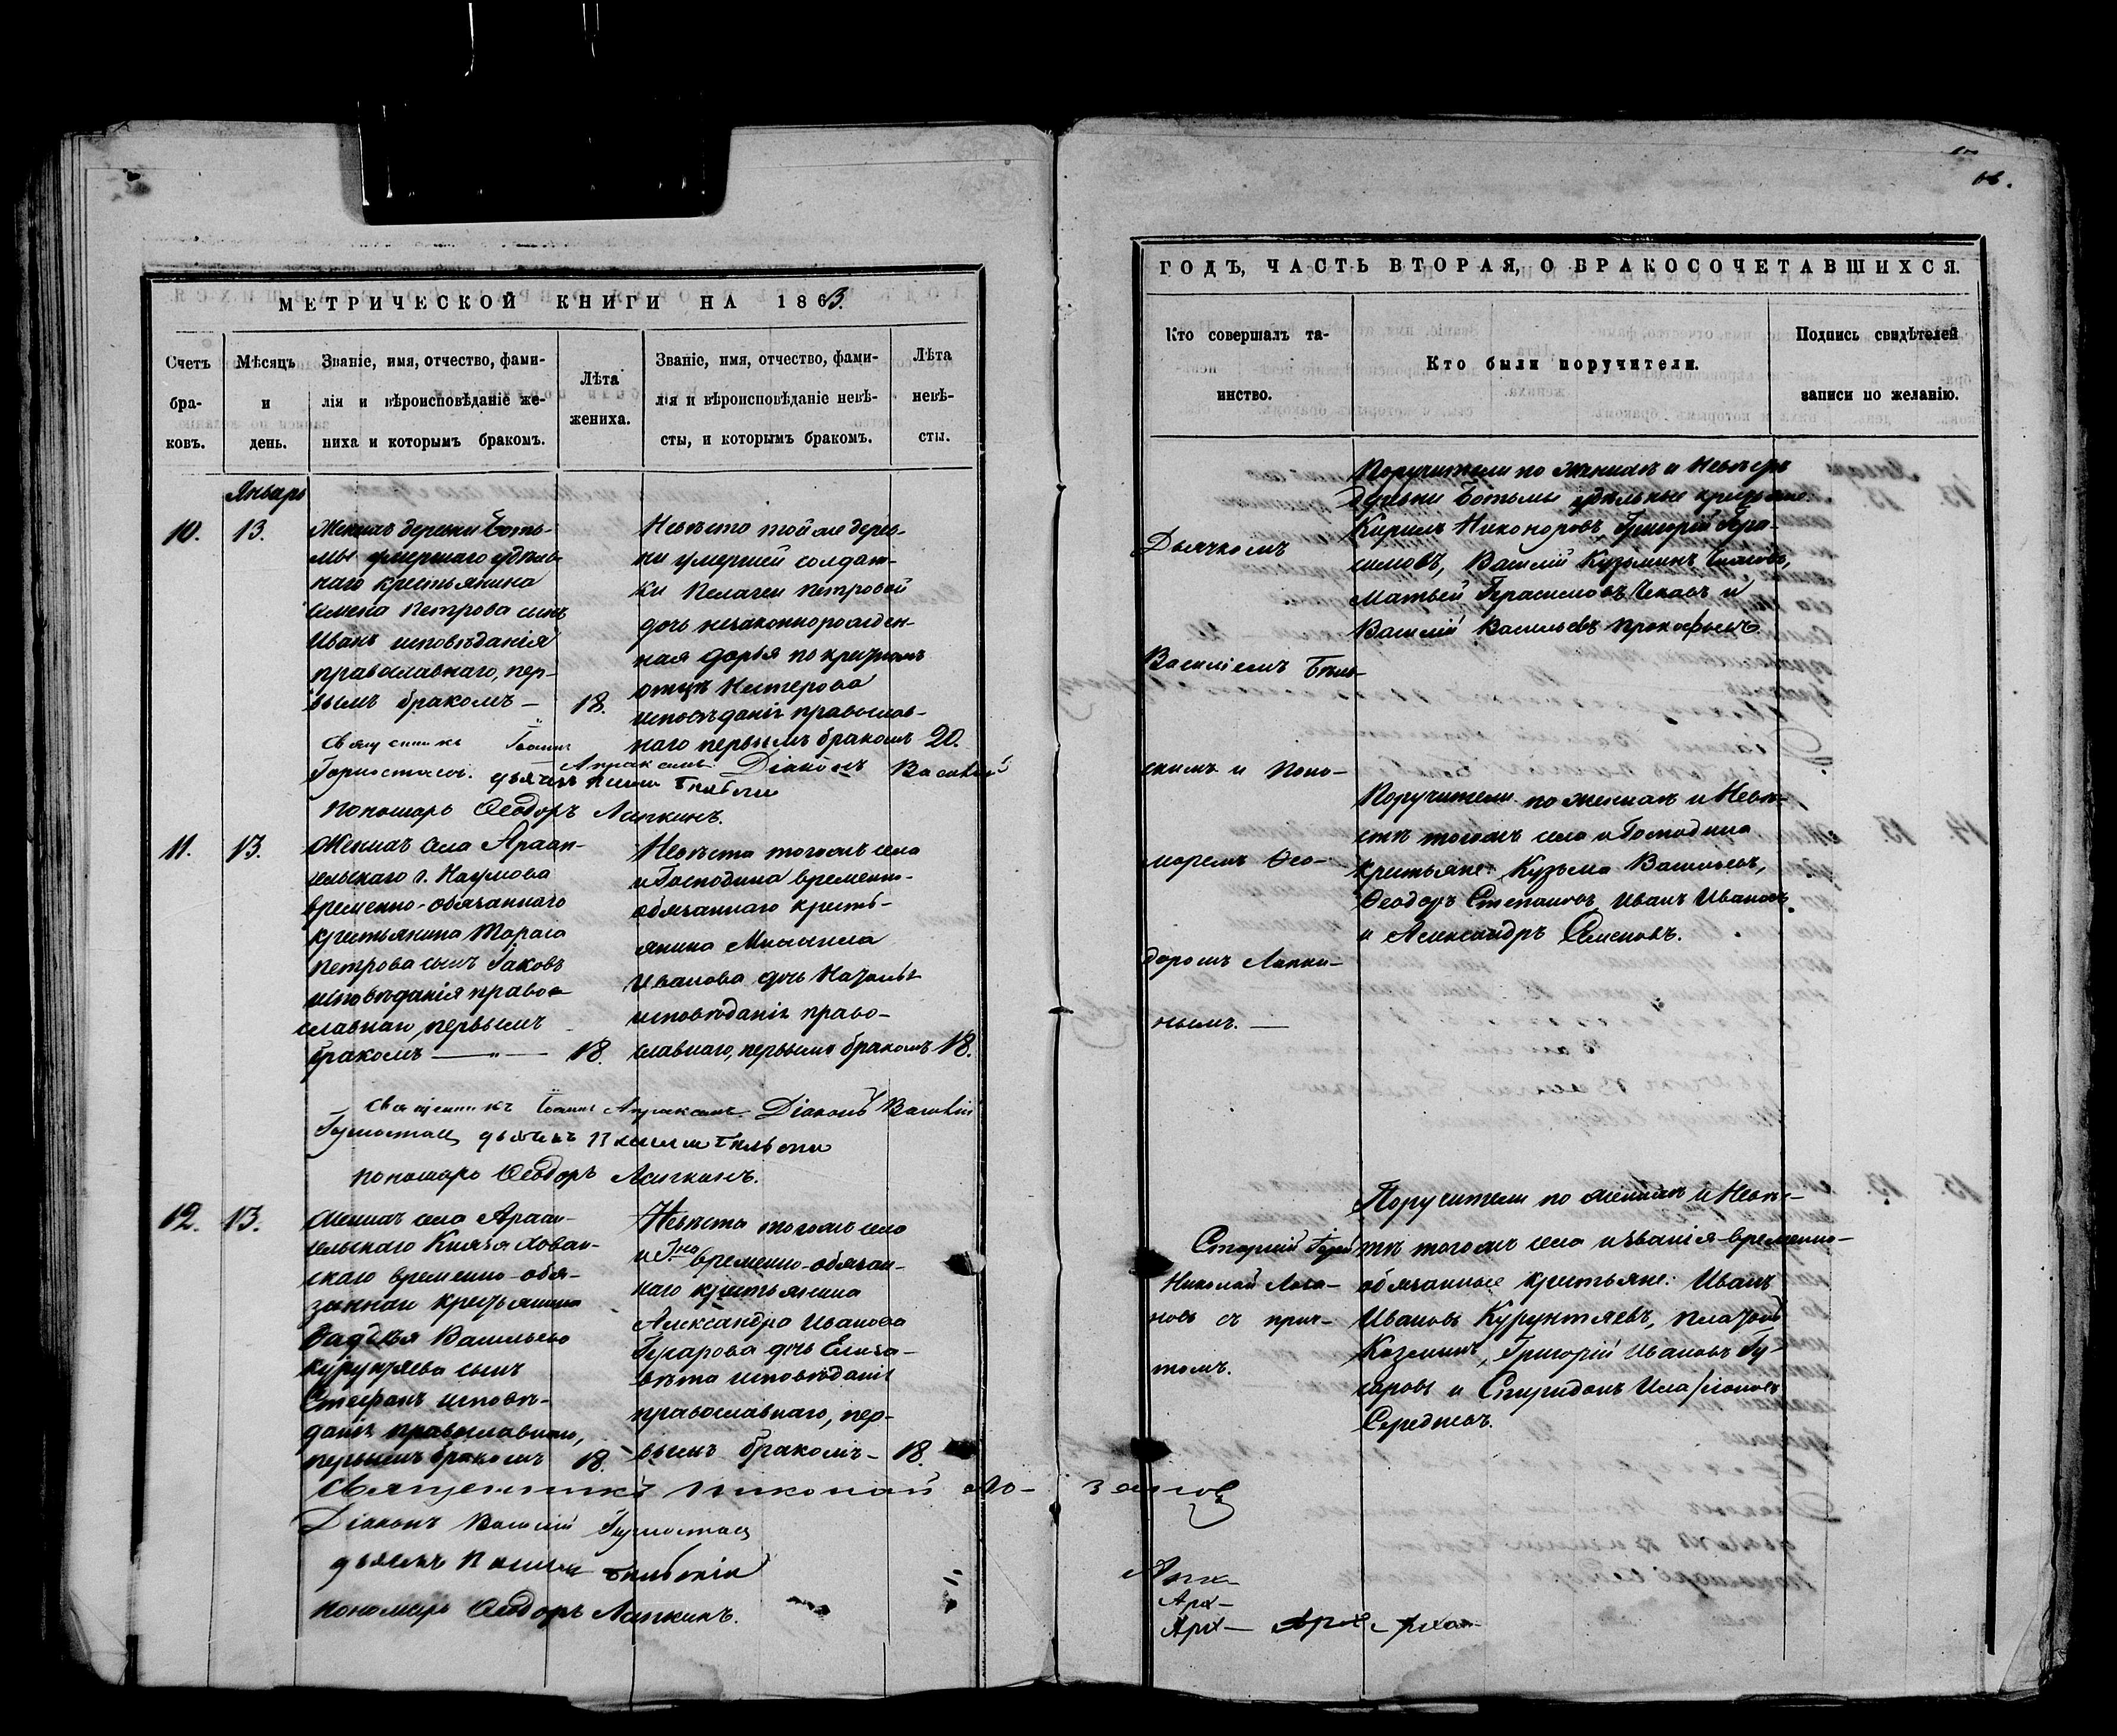 МЕТРИЧЕСКОЙ КНИГИ НА 1863.
Счетъ бра-ковъ.
Мѣсяцъ и день.
Званіе, имя, отчество, фами-
лія и вѣроисповѣданіе же-
ниха и которымъ бракомъ.
Лѣта жениха.
Званіе, имя, отчество, фами-
лія и вѣроисповѣданіе невѣ-
сты, и которымъ бракомъ.
Лѣта невѣ-сты.
Январь
10. 13.
Женихъ деревни Боть-
мы умершаго удѣль-
наго крестьянина
Семена Петрова сынъ
Иванъ исповѣданія
православнаго, пер-
вымъ бракомъ — 18.
Невѣста той же дерев-
ни умершей солдат-
ки Пелагеи Петровой
дочь незаконнорожден-
ная Дарья по крестномъ
отцѣ Нестерова
исповѣданія православ-
наго первымъ бракомъ 20.
Священникъ Іоаннъ Апраксинъ. Діаконъ Василій
Горностаевъ. дьячекъ Бѣльскій
пономарь Ѳеодоръ Лапкинъ.
11. 13.
Женихъ села Архан-
гельскаго г. Наумова
временно-обязаннаго
крестьянина Тараса
Петрова сынъ Іаковъ
исповѣданія право-
славнаго, первымъ
бракомъ — „ — 18.
Невѣста тогожъ села
и Господина временно-
обязаннаго кресть-
янина Михаила
Иванова дочь Наталья
исповѣданія право-
славнаго, первымъ бракомъ 18.
Священникъ Іоаннъ Апраксинъ. Діаконъ Василій
Горностаевъ дьячекъ Бѣльскій
пономарь Ѳеодоръ Лапкинъ.
12. 13.
Женихъ села Архан-
гельскаго Князя Хован-
скаго временно-обя-
заннаго крестьянина
Фаддѣя Васильева
Курунтяева сынъ
Стефанъ исповѣ-
данія православнаго,
первымъ бракомъ 18.
Невѣста тогожъ села
и Гна временно-обязан-
наго крестьянина
Александра Иванова
Гусарова дочь Елиза-
вета исповѣданія
православнаго, пер-
вымъ бракомъ — 18.
Священникъ Николай Ло-
зановъ
Діаконъ Василій Горностаевъ
дьячекъ Бѣльскій
пономарь Ѳеодоръ Лапкинъ.
ГОДЪ, ЧАСТЬ ВТОРАЯ, О БРАКОСОЧЕТАВШИХСЯ.
Кто совершалъ та-
инство.
Кто были поручители.
Подпись свидѣтелей
записи по желанію.
Дьячкомъ
Василіемъ Бѣль-
скимъ и Поно-
маремъ Ѳео-
доромъ Лапки-
нымъ. —
Поручители по женихѣ и невѣстѣ
деревни Ботьмы удѣльные крестьяне
Кирилъ Никоноровъ, Григорій Гера-
симовъ, Василій Кузьминъ
Матвей Герасимовъ и
Василій Васильевъ Прокофьевъ
Поручители по женихѣ и невѣ-
стѣ тогожъ села и Господина
крестьяне: Кузьма Васильевъ,
Ѳеодоръ Степановъ, Иванъ Ивановъ
и Александръ Семеновъ.
Старшій Іерей
Николай Лоза-
новъ съ прич-
томъ.
Поручители по женихѣ и невѣ-
стѣ тогожъ села и званія временно-
обязанные крестьяне: Иванъ
Ивановъ Курунтяевъ, Платонъ
Козминъ, Григорій Ивановъ Гу-
саровъ и Спиридонъ Иларіоновъ
Середневъ.
Арх-
Арх-